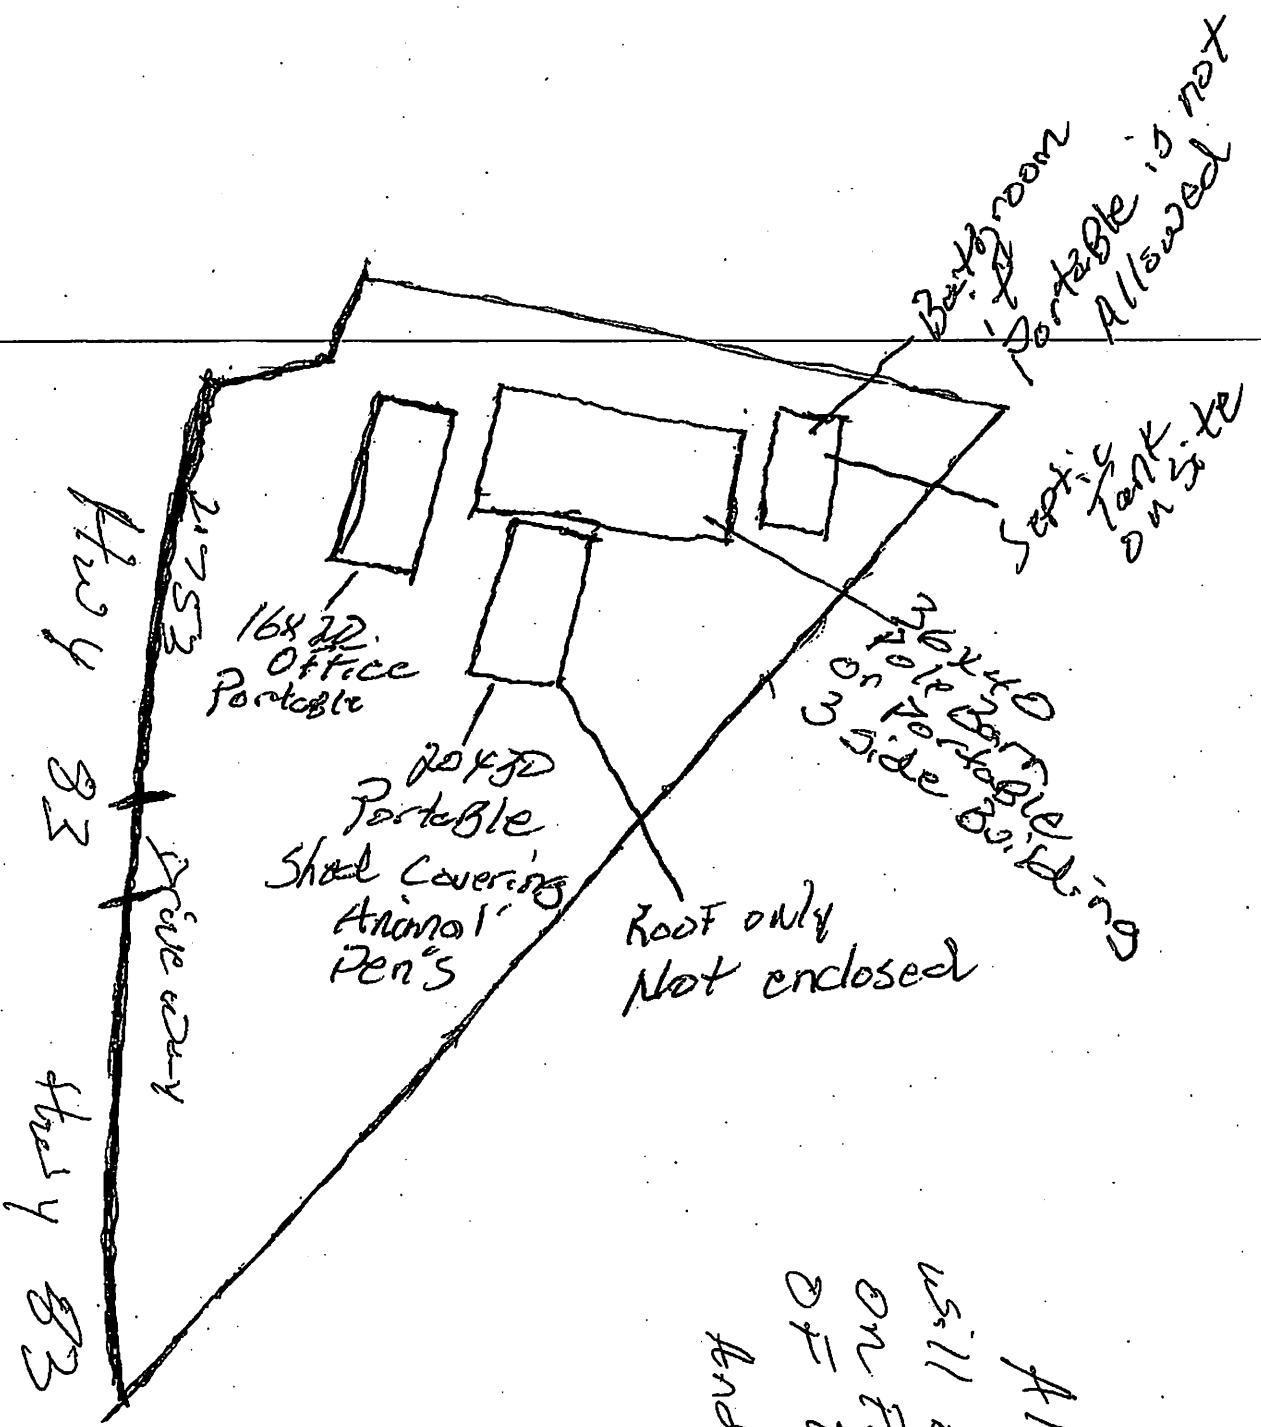 Bathroom
if
Portable is not
Allowed
Septic
Tank
on Site
36x40
Pole Barn
on Portable
3 Side Building
16x20
Office
Portable
20x30
Portable
Shed Covering
Animal
Pen's
Roof only
Not enclosed
Hwy 83
Driveway
Hwy 83
will
on
OF
And